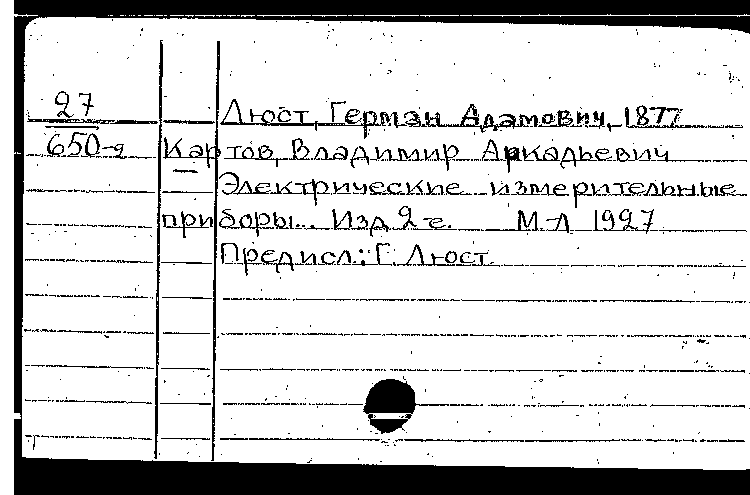 27
650-д
Люст, Герман Адамович, 1877
Картов, Владимир Аркадьевич
Электрические измерительные
приборы.. Изд 2-е. М-Л 1927
Предисл.: Г. Люст.